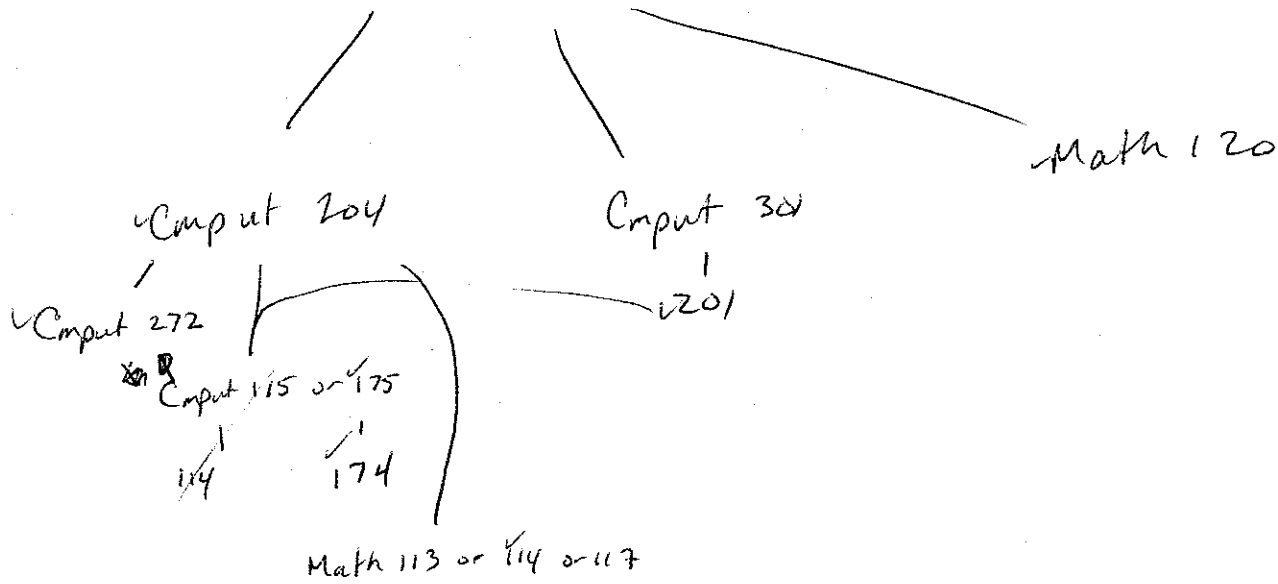 Math 120
Cmput 204 Cmput 301
Cmput 272 201
Cmput 115 or 175
114 174
Math 113 or 114 or 117